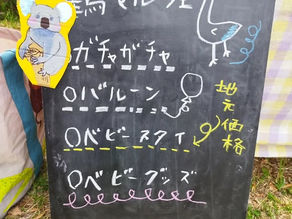 鳥マルシェ
ガチャガチャ
○バルーン
○ベビースタイ
地元価格
○ベビーグッズ